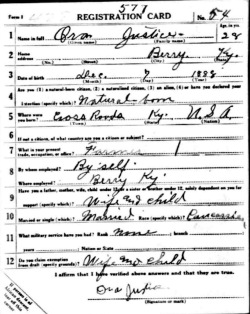 Form 1
571
REGISTRATION CARD
No. 54
1 Name in full Ora Justice Age, in yrs. 28
(Given name) (Family name)
2 Home address Berry, Ky.
(No.) (Street) (City) (State)
3 Date of birth Dec. 7 1888
(Month) (Day) (Year)
4 Are you (1) a natural-born citizen, (2) a naturalized citizen, (3) an alien, (4) or have you declared your
intention (specify which)? Natural-born
5 Where were you born? Cross Roads Ky. U.S.A.
(Town) (State) (Nation)
6 If not a citizen, of what country are you a citizen or subject?
7 What is your present trade, occupation, or office? Farmer
8 By whom employed? By self
Where employed? Berry Ky.
9 Have you a father, mother, wife, child under 12, or a sister or brother under 12, solely dependent on you for
support (specify which)? Wife and child
10 Married or single (which)? Married Race (specify which)? Caucasian
11 What military service have you had? Rank none ; branch
years Nation or State
12 Do you claim exemption from draft (specify grounds)? Wife and child
I affirm that I have verified above answers and that they are true.
Ora Justice
(Signature or mark)